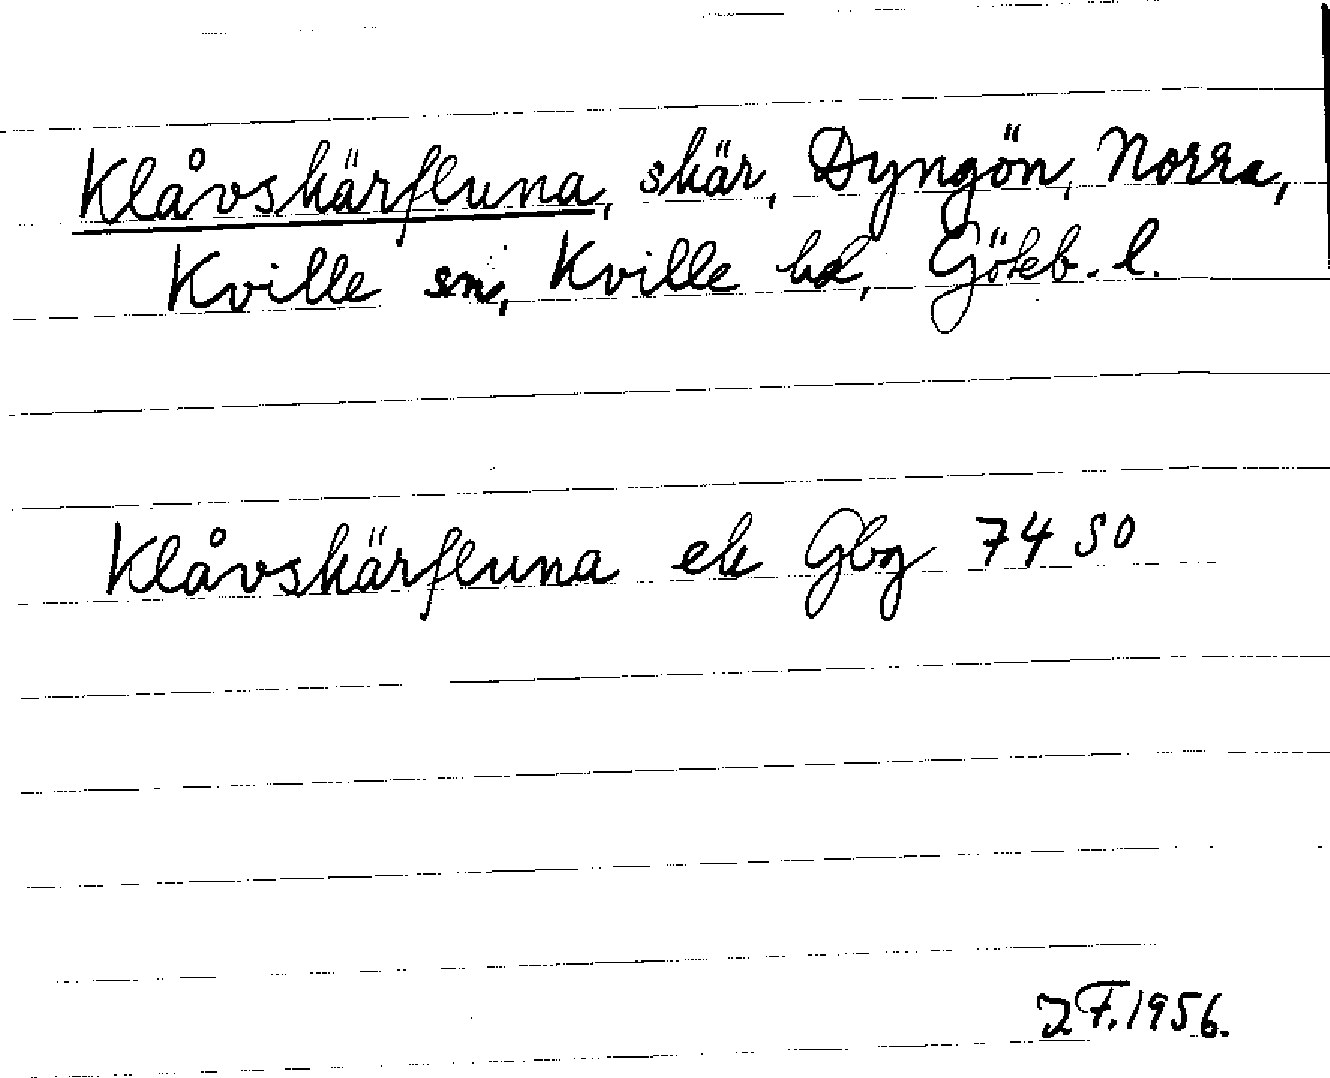 Klåvskärfluna, skär, Dyngön, Norra,
Kville sn, Kville hd, Göteb. l.
Klåvskärfluna ek Gbg 74 SO
IF. 1956.